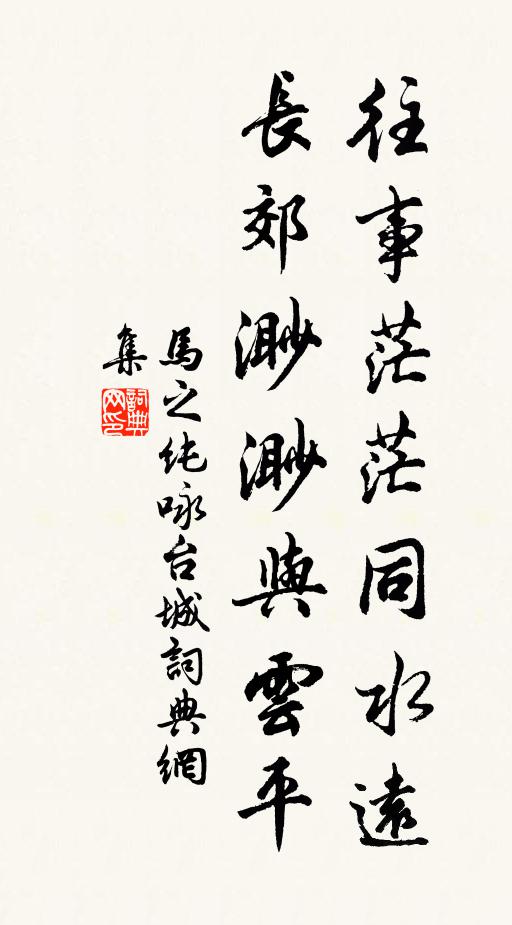 往事茫茫同水遠
長郊渺渺與雲平
馬之純咏台城詞典網
集
詞典
网印